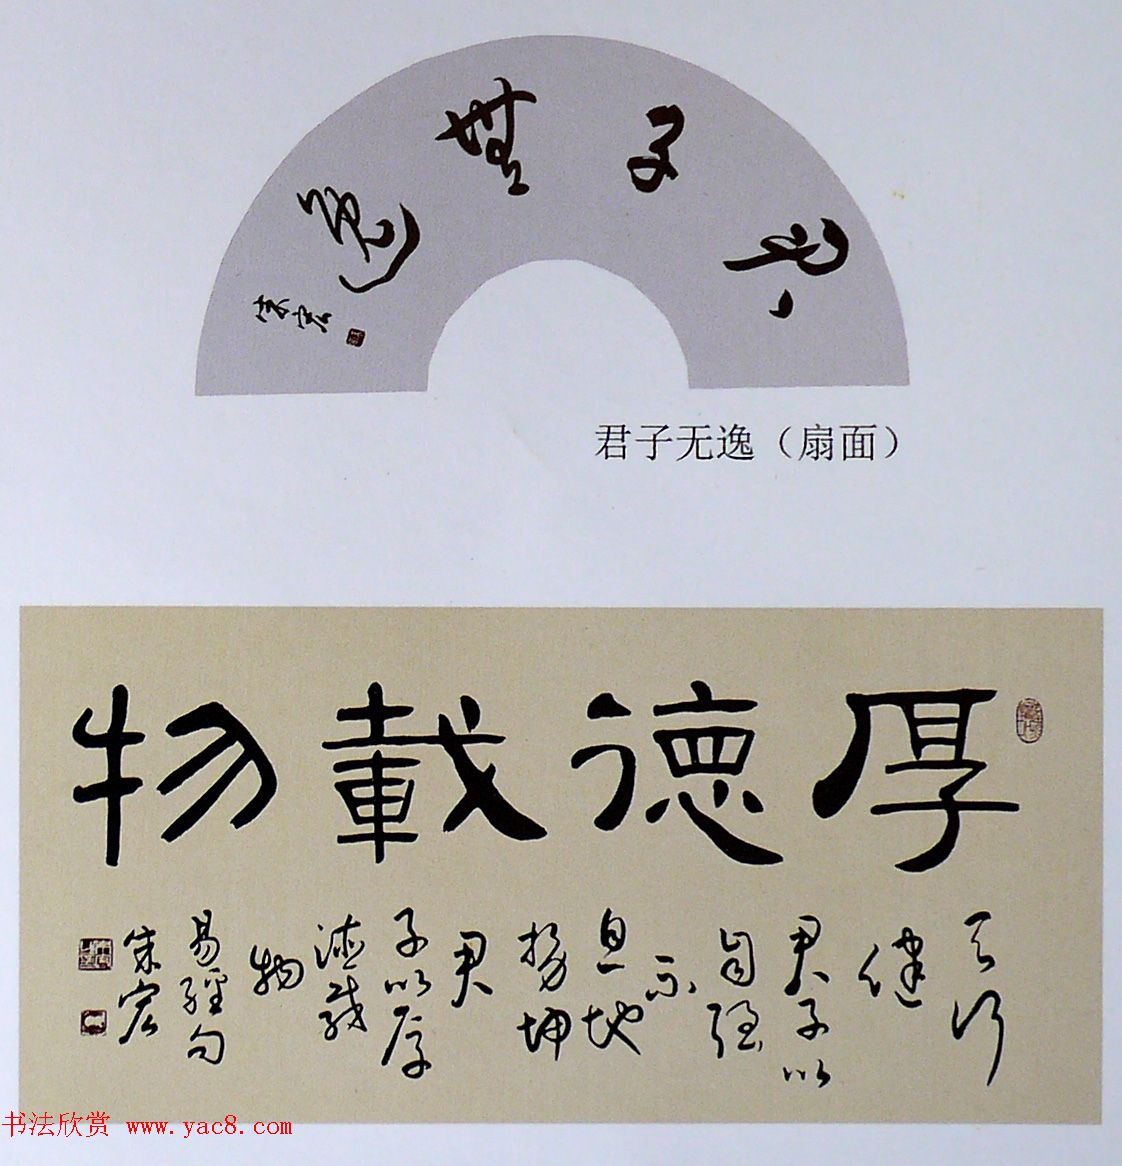 君子無逸
朱宏
君子无逸（扇面）
厚德載物
天行
健
君子以
自強
不
息地
势坤
君
子以厚
德載
物
易經句
朱宏
书法欣赏 www.yac8.com